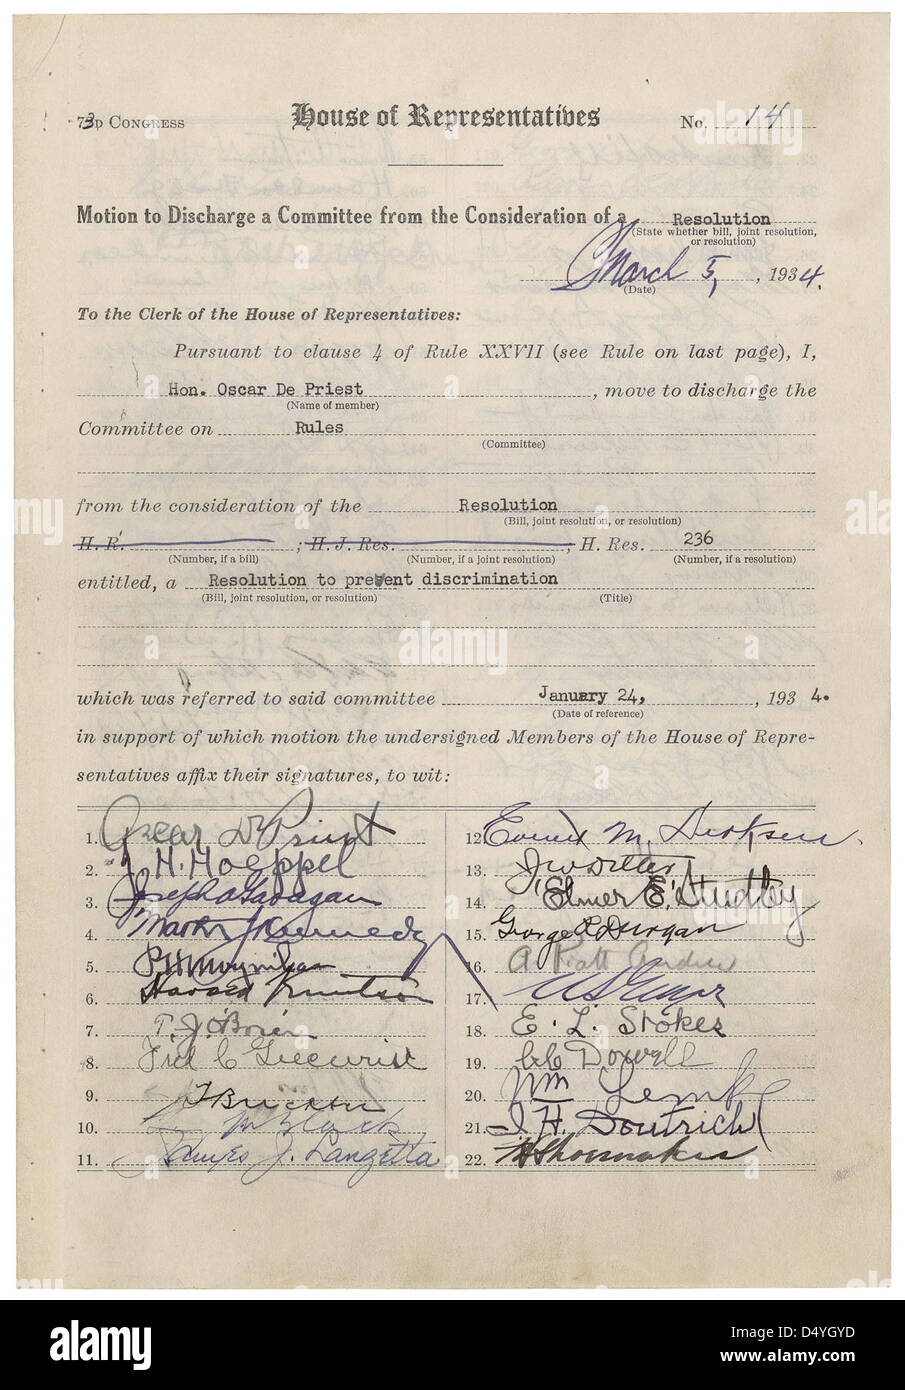 73D CONGRESS House of Representatives No. 14
Motion to Discharge a Committee from the Consideration of a Resolution
(State whether bill, joint resolution,
or resolution)
March 5, , 1934.
(Date)
To the Clerk of the House of Representatives:
Pursuant to clause 4 of Rule XXVII (see Rule on last page), I,
Hon. Oscar De Priest , move to discharge the
(Name of member)
Committee on Rules
(Committee)
from the consideration of the Resolution
(Bill, joint resolution, or resolution)
H. R. ; H. J. Res. ; H. Res. 236
(Number, if a bill) (Number, if a joint resolution) (Number, if a resolution)
entitled, a Resolution to prevent discrimination
(Bill, joint resolution, or resolution) (Title)
which was referred to said committee January 24, , 1934.
(Date of reference)
in support of which motion the undersigned Members of the House of Repre-
sentatives affix their signatures, to wit:
1. Oscar De Priest
2. J. H. Hoeppel
3. Joseph A Gavagan
4. Martin J Kennedy
5. P. H. Moynihan
6. Harold Knutson
7. T. J. O'Brien
8. Fred C Gilchrist
9.
10.
11. James J. Lanzetta
12. Everett M. Dirksen
13. J W Ditter
14. Elmer E. Studley
15. George R Durgan
16. A Piatt Andrew
17.
18. E. L. Stokes
19. C C Dowell
20. Wm Lemke
21. I. H. Doutrich
22. Shoemaker
alamy
Image ID: D4YGYD
www.alamy.com